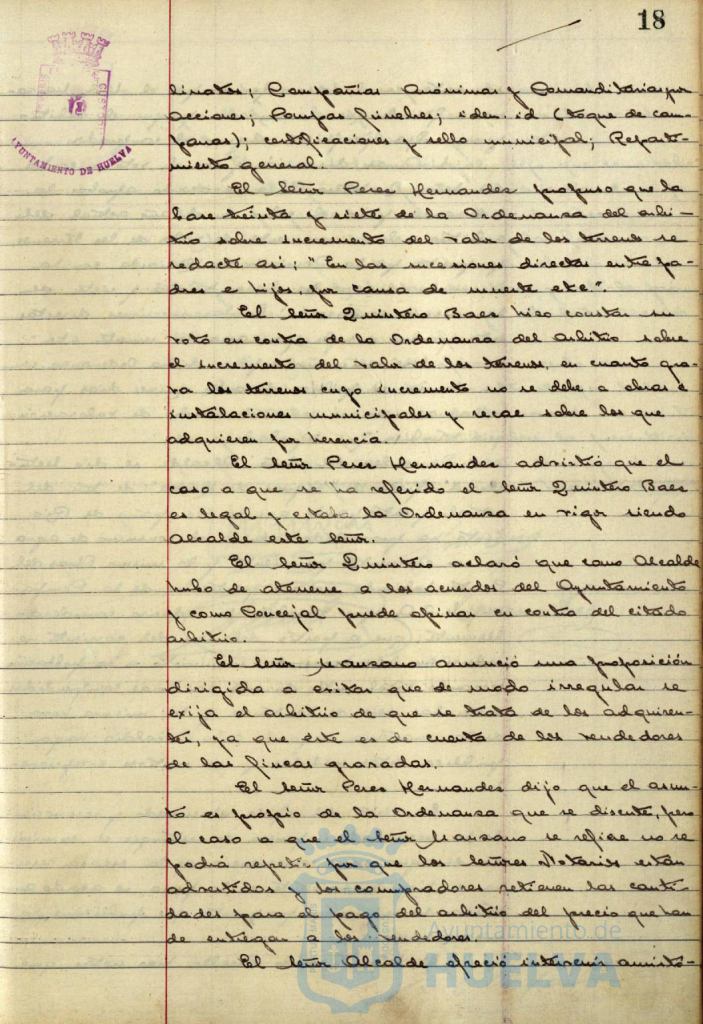 18
AYUNTAMIENTO DE HUELVA
linatos; Compañias Anónimas y Comanditarias por
acciones; Pompas fúnebres; idem. id (toque de cam-
panas); certificaciones y sello municipal; Reparti-
miento general.
El Señor Perez Hernandez propuso que la
base treinta y siete de la Ordenanza del arbi-
trio sobre incremento del valor de los terrenos se
redacte asi; "En las sucesiones directas entre pa-
dres e hijos, por causa de muerte etc.".
El Señor Quintero Baez hizo constar su
voto en contra de la Ordenanza del Arbitrio sobre
el incremento del valor de los terrenos, en cuanto gra-
va los terrenos cuyo incremento no se debe a obras e
instalaciones municipales y recae sobre los que
adquieren por herencia.
El Señor Perez Hernandez advirtió que el
caso a que se ha referido el Señor Quintero Baez
es legal y estaba la Ordenanza en vigor siendo
Alcalde este Señor.
El Señor Quintero aclaró que como Alcalde
hubo de atenerse a los acuerdos del Ayuntamiento
y como Concejal puede opinar en contra del citado
arbitrio.
El Señor Manzano anunció una proposición
dirigida a evitar que de modo irregular se
exija el arbitrio de que se trata de los adquiren-
tes, ya que éste es de cuenta de los vendedores
de las fincas gravadas.
El Señor Perez Hernandez dijo que el asun-
to es propio de la Ordenanza que se discute, pero
el caso a que el Señor Manzano se refiere no se
podrá repetir por que los Señores Notarios están
advertidos y los compradores retienen las canti-
dades para el pago del arbitrio del precio que han
de entregar a los vendedores.
El Señor Alcalde ofreció intervenir amisto-
Ayuntamiento de
HUELVA